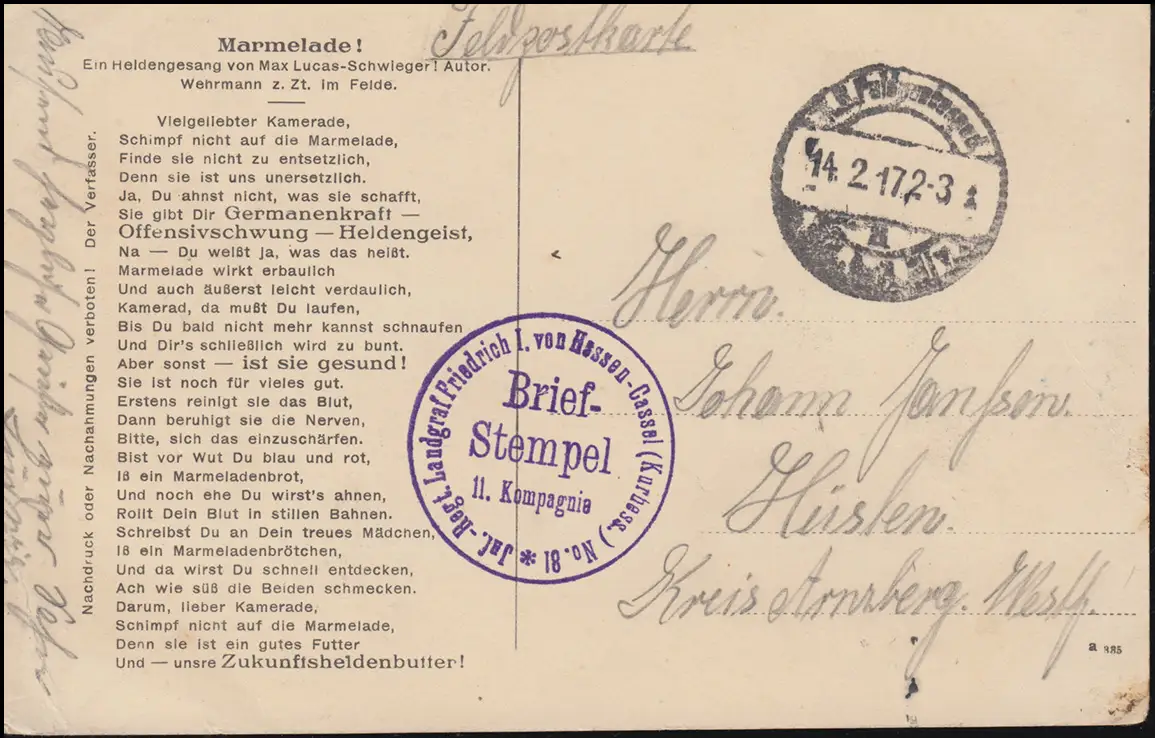 Feldpostkarte
Marmelade!
Ein Heldengesang von Max Lucas-Schwieger! Autor.
Wehrmann z. Zt. im Felde.
Vielgeliebter Kamerade,
Schimpf nicht auf die Marmelade,
Finde sie nicht zu entsetzlich,
Denn sie ist uns unersetzlich.
Ja, Du ahnst nicht, was sie schafft,
Sie gibt Dir Germanenkraft —
Offensivschwung — Heldengeist,
Na — Du weißt ja, was das heißt.
Marmelade wirkt erbaulich
Und auch äußerst leicht verdaulich,
Kamerad, da mußt Du laufen,
Bis Du bald nicht mehr kannst schnaufen
Und Dir's schließlich wird zu bunt.
Aber sonst — ist sie gesund!
Sie ist noch für vieles gut.
Erstens reinigt sie das Blut,
Dann beruhigt sie die Nerven,
Bitte, sich das einzuschärfen.
Bist vor Wut Du blau und rot,
Iß ein Marmeladenbrot,
Und noch ehe Du wirst's ahnen,
Rollt Dein Blut in stillen Bahnen.
Schreibst Du an Dein treues Mädchen,
Iß ein Marmeladenbrötchen,
Und da wirst Du schnell entdecken,
Ach wie süß die Beiden schmecken.
Darum, lieber Kamerade,
Schimpf nicht auf die Marmelade,
Denn sie ist ein gutes Futter
Und — unsre Zukunftsheldenbutter!
Nachdruck oder Nachahmungen verboten! Der Verfasser.
14.2.17.2-3
Inf.-Regt. Landgraf Friedrich I. von Hessen-Cassel (Kurhess.) No. 81 *
Brief-
Stempel
11. Kompagnie
Herrn.
Johann Janssen.
Hüsten.
Kreis Arnsberg. Westf.
a 885